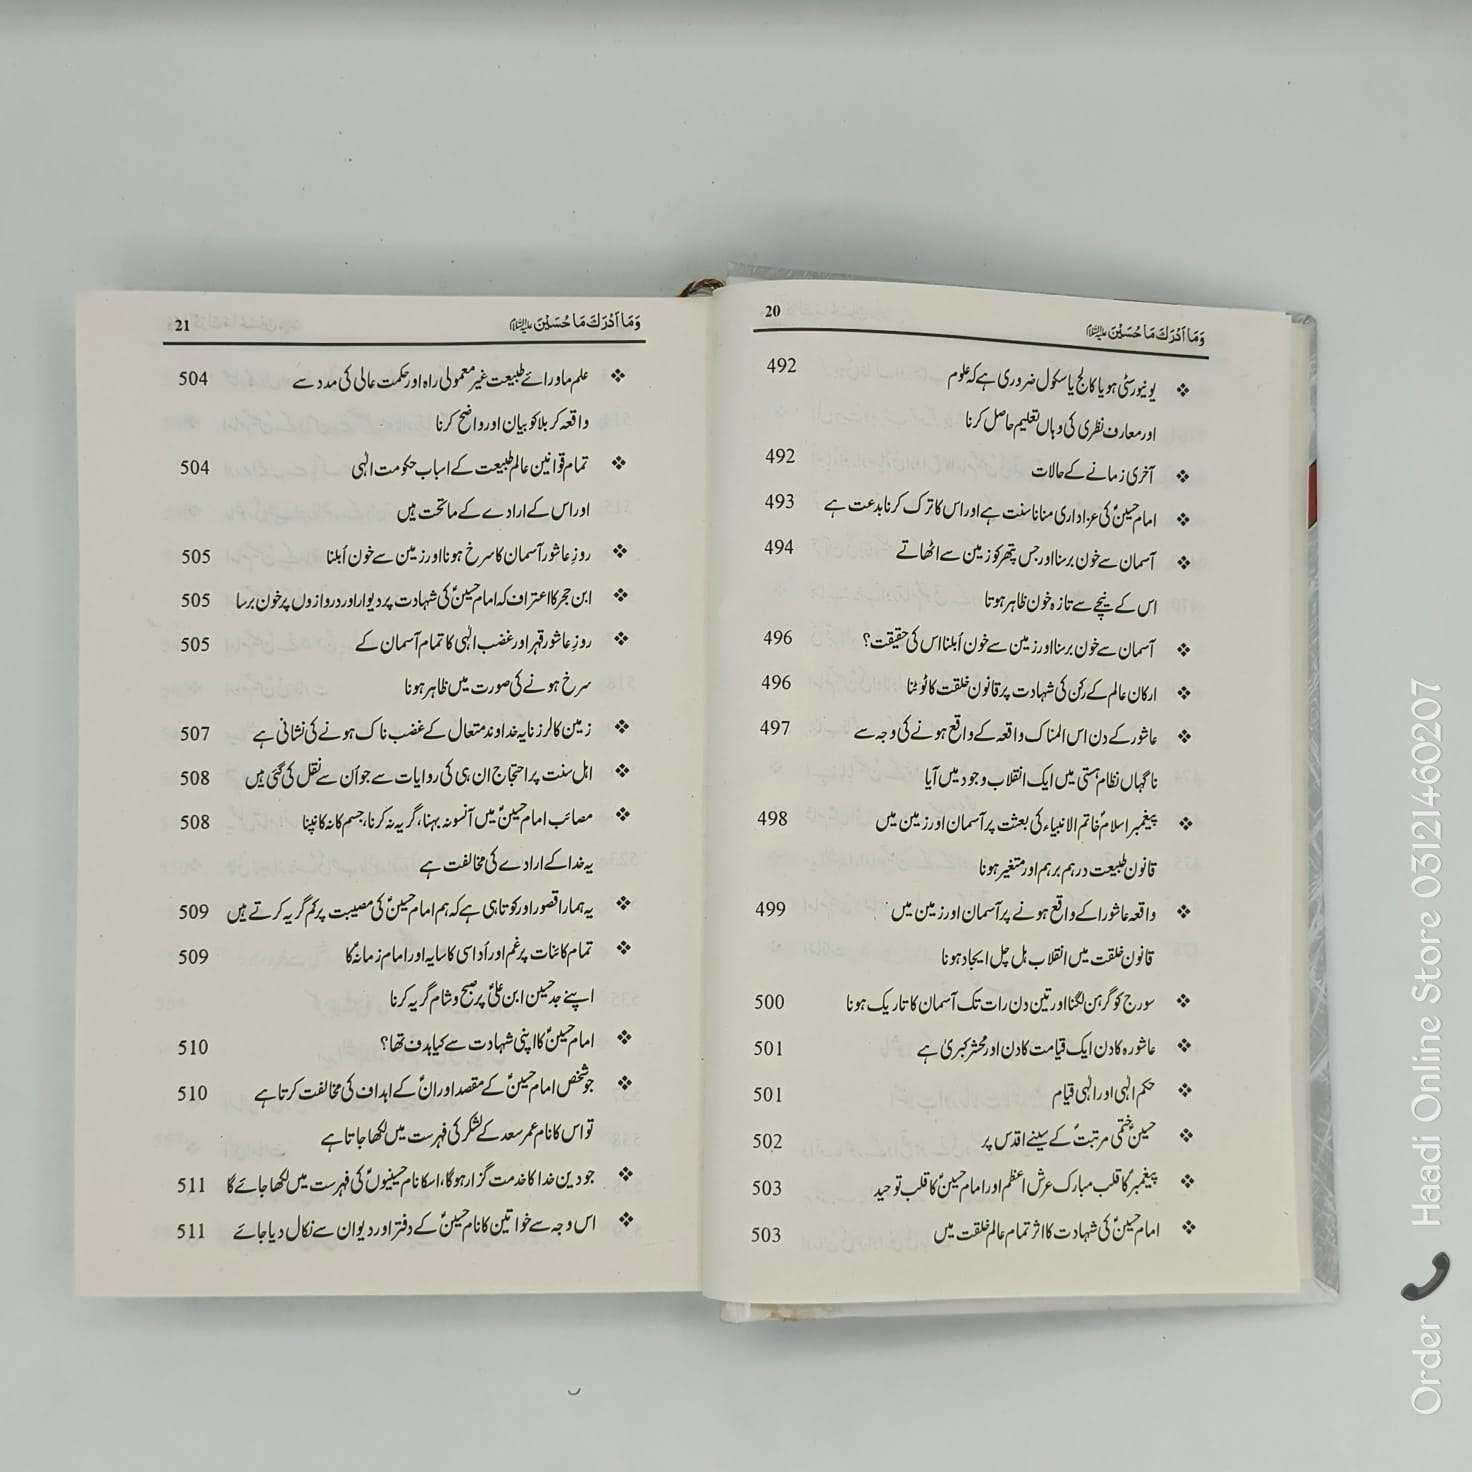 20
وَمَا اَدْرَكَ مَا حُسَیْن علیہ السلام
❖ یونیورسٹی ہو یا کالج یا سکول ضروری ہے کہ علوم 492
اور معارف نظری کی وہاں تعلیم حاصل کرنا
❖ آخری زمانے کے حالات 492
❖ امام حسینؑ کی عزاداری منانا سنت ہے اور اس کا ترک کرنا بدعت ہے 493
❖ آسمان سے خون برسنا اور جس پتھر کو زمین سے اٹھاتے 494
اس کے نیچے سے تازہ خون ظاہر ہوتا
❖ آسمان سے خون برسنا اور زمین سے خون اُبلنا اس کی حقیقت؟ 496
❖ ارکان عالم کے رکن کی شہادت پر قانون خلقت کا ٹوٹنا 496
❖ عاشور کے دن اس المناک واقعہ کے واقع ہونے کی وجہ سے 497
ناگہاں نظام ہستی میں ایک انقلاب وجود میں آیا
❖ پیغمبر اسلامؐ خاتم الانبیاء کی بعثت پر آسمان اور زمین میں 498
قانون طبیعت درہم برہم اور متغیر ہونا
❖ واقعہ عاشورا کے واقع ہونے پر آسمان اور زمین میں 499
قانون خلقت میں انقلاب ہل چل ایجاد ہونا
❖ سورج کو گرہن لگنا اور تین دن رات تک آسمان کا تاریک ہونا 500
❖ عاشورہ کا دن ایک قیامت کا دن اور محشر کبریٰ ہے 501
❖ حکم الٰہی اور الٰہی قیام 501
❖ حسینؑ ختمی مرتبتؐ کے سینے اقدس پر 502
❖ پیغمبرؐ کا قلب مبارک عرش اعظم اور امام حسینؑ کا قلب توحید 503
❖ امام حسینؑ کی شہادت کا اثر تمام عالم خلقت میں 503
21
وَمَا اَدْرَكَ مَا حُسَیْن علیہ السلام
❖ علم ماورائے طبیعت غیر معمولی راہ اور حکمت عالی کی مدد سے 504
واقعہ کربلا کو بیان اور واضح کرنا
❖ تمام قوانین عالم طبیعت کے اسباب حکومت الٰہی 504
اور اس کے ارادے کے ماتحت ہیں
❖ روزِ عاشور آسمان کا سرخ ہونا اور زمین سے خون اُبلنا 505
❖ ابن حجر کا اعتراف کہ امام حسینؑ کی شہادت پر دیوار اور دروازوں پر خون برسا 505
❖ روزِ عاشور قہر اور غضب الٰہی کا تمام آسمان کے 505
سرخ ہونے کی صورت میں ظاہر ہونا
❖ زمین کا لرزنا یہ خداوند متعال کے غضب ناک ہونے کی نشانی ہے 507
❖ اہل سنت پر احتجاج ان ہی کی روایات سے جو اُن سے نقل کی گئی ہیں 508
❖ مصائب امام حسینؑ میں آنسو نہ بہنا، گریہ نہ کرنا، جسم کا نہ کانپنا 508
یہ خدا کے ارادے کی مخالفت ہے
❖ یہ ہمارا قصور اور کوتاہی ہے کہ ہم امام حسینؑ کی مصیبت پر کم گریہ کرتے ہیں 509
❖ تمام کائنات پر غم اور اُداسی کا سایہ اور امام زمانہؑ کا 509
اپنے جد حسین ابن علیؑ پر صبح و شام گریہ کرنا
❖ امام حسینؑ کا اپنی شہادت سے کیا ہدف تھا؟ 510
❖ جو شخص امام حسینؑ کے مقصد اور انؑ کے اہداف کی مخالفت کرتا ہے 510
تو اس کا نام عمر سعد کے لشکر کی فہرست میں لکھا جاتا ہے
❖ جو دین خدا کا خدمت گزار ہوگا، اسکا نام حسینیوںؑ کی فہرست میں لکھا جائے گا 511
❖ اس وجہ سے خواتین کا نام حسینؑ کے دفتر اور دیوان سے نکال دیا جائے 511
Order 📞 Haadi Online Store 03121460207